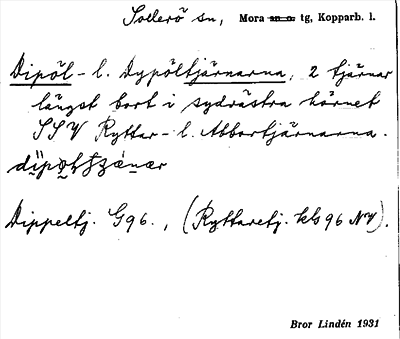 Sollerö sn, Mora sn o. tg, Kopparb. l.
Dipöl- l. Dypöltjärnarna, 2 tjärnar
längst bort i sydvästra hörnet
SSV Ryttar- l. Abbortjärnarna.
Dippeltj. G96., (Ryttaretj. kls 96 NV).
Bror Lindén 1931